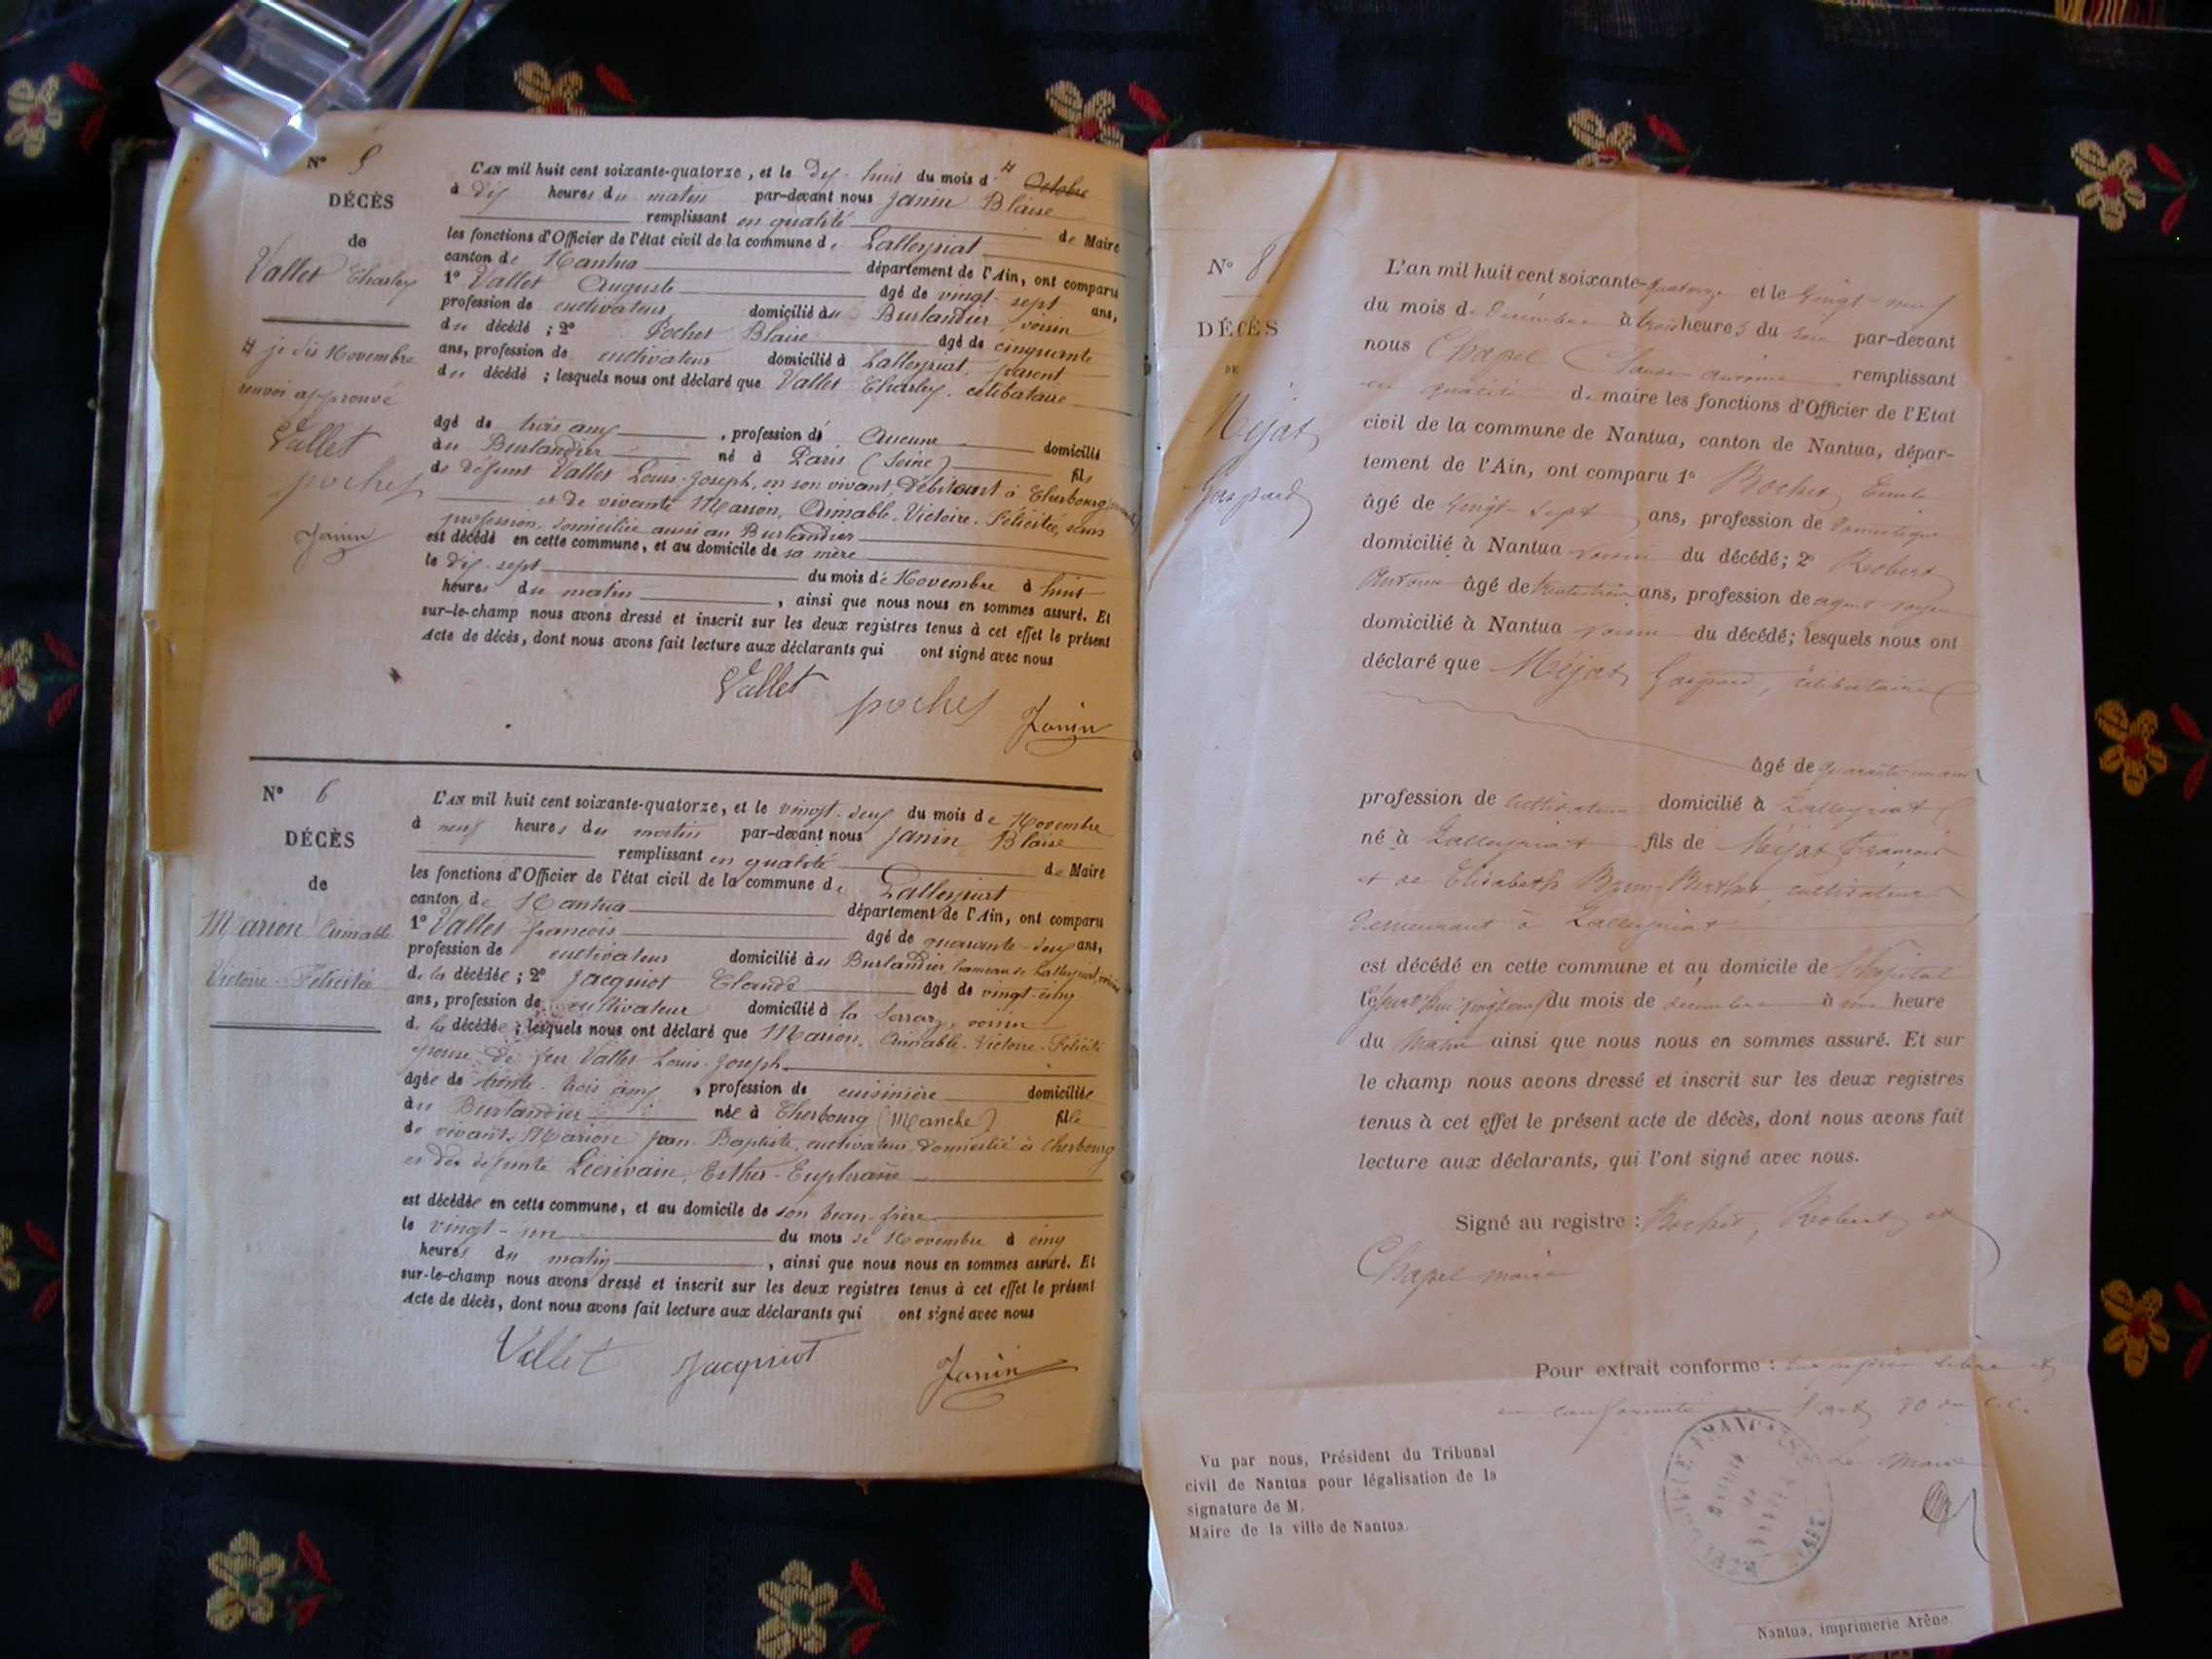 N° 5
DÉCÈS
de
Vallet Charles
# je dis Novembre
renvoi approuvé
Vallet
pochet
Janin
L'AN mil huit cent soixante-quatorze, et le dix-huit du mois d # Octobre
à dix heures du matin par-devant nous Janin Blaise
remplissant en qualité de Maire
les fonctions d'Officier de l'état civil de la commune de Lalleyriat
canton de Nantua département de l'Ain, ont comparu
1° Vallet Auguste âgé de vingt-sept ans,
profession de cultivateur domicilié au Burlandier, voisin
du décédé ; 2° Pochet Blaise âgé de cinquante
ans, profession de cultivateur domicilié à Lalleyriat, parent
du décédé ; lesquels nous ont déclaré que Vallet Charles, célibataire
âgé de trois ans, profession de Aucune domicilié
au Burlandier né à Paris (Seine) fils
de défunt Vallet Louis-Joseph, en son vivant, Débitant à Cherbourg
et de vivante Marion, Aimable-Victoire-Félicitée, sans
profession, domiciliée aussi au Burlandier
est décédé en cette commune, et au domicile de sa mère
le dix-sept du mois de Novembre à huit
heures du matin, ainsi que nous nous en sommes assuré. Et
sur-le-champ nous avons dressé et inscrit sur les deux registres tenus à cet effet le présent
Acte de décès, dont nous avons fait lecture aux déclarants qui ont signé avec nous
Vallet pochet Janin
N° 6
DÉCÈS
de
Marion Aimable
Victoire-Félicitée
L'AN mil huit cent soixante-quatorze, et le vingt-deux du mois de Novembre
à neuf heures du matin par-devant nous Janin Blaise
remplissant en qualité de Maire
les fonctions d'Officier de l'état civil de la commune de Lalleyriat
canton de Nantua département de l'Ain, ont comparu
1° Vallet François âgé de quarante-deux ans,
profession de cultivateur domicilié au Burlandier, hameau de Lalleyriat, voisin
de la décédée ; 2° Jacquiot Claude âgé de vingt-cinq
ans, profession de cultivateur domicilié à la Serraz, voisin
de la décédée ; lesquels nous ont déclaré que Marion, Aimable-Victoire-Félicité
épouse de feu Vallet Louis-Joseph
âgée de trente-trois ans, profession de cuisinière domiciliée
au Burlandier née à Cherbourg (Manche) fille
de vivant Marion Jean-Baptiste, cultivateur, domicilié à Cherbourg
et de défunte Lécrivain, Esther-Euphrasie
est décédée en cette commune, et au domicile de son beau-frère
le vingt-un du mois de Novembre à cinq
heures du matin, ainsi que nous nous en sommes assuré. Et
sur-le-champ nous avons dressé et inscrit sur les deux registres tenus à cet effet le présent
Acte de décès, dont nous avons fait lecture aux déclarants qui ont signé avec nous
Vallet Jacquiot Janin
N° 8
DÉCÈS
DE
Méjat
Gaspard
L'an mil huit cent soixante-quatorze et le vingt-neuf
du mois de Décembre à trois heures du soir par-devant
nous Chapel Claude Antoine remplissant
en qualité de maire les fonctions d'Officier de l'Etat
civil de la commune de Nantua, canton de Nantua, dépar-
tement de l'Ain, ont comparu 1° Bochet Emile
âgé de vingt-sept ans, profession de domestique
domicilié à Nantua voisin du décédé ; 2° Robert
Antoine âgé de trente trois ans, profession de agent voyer
domicilié à Nantua voisin du décédé ; lesquels nous ont
déclaré que Méjat Gaspard, célibataire
âgé de quarante un ans
profession de cultivateur domicilié à Lalleyriat
né à Lalleyriat fils de Méjat François
et de Elisabeth Brun-Berthet, cultivateurs
demeurant à Lalleyriat
est décédé en cette commune et au domicile de l'hôpital
le jourd'hui vingt neuf du mois de décembre à une heure
du matin ainsi que nous nous en sommes assuré. Et sur
le champ nous avons dressé et inscrit sur les deux registres
tenus à cet effet le présent acte de décès, dont nous avons fait
lecture aux déclarants, qui l'ont signé avec nous.
Signé au registre : Bochet, Robert et
Chapel maire
Pour extrait conforme :
en conformité l'art. 80 du C.C.
Le Maire
Vu par nous, Président du Tribunal
civil de Nantua pour légalisation de la
signature de M.
Maire de la ville de Nantua.
Nantua, imprimerie Arène.